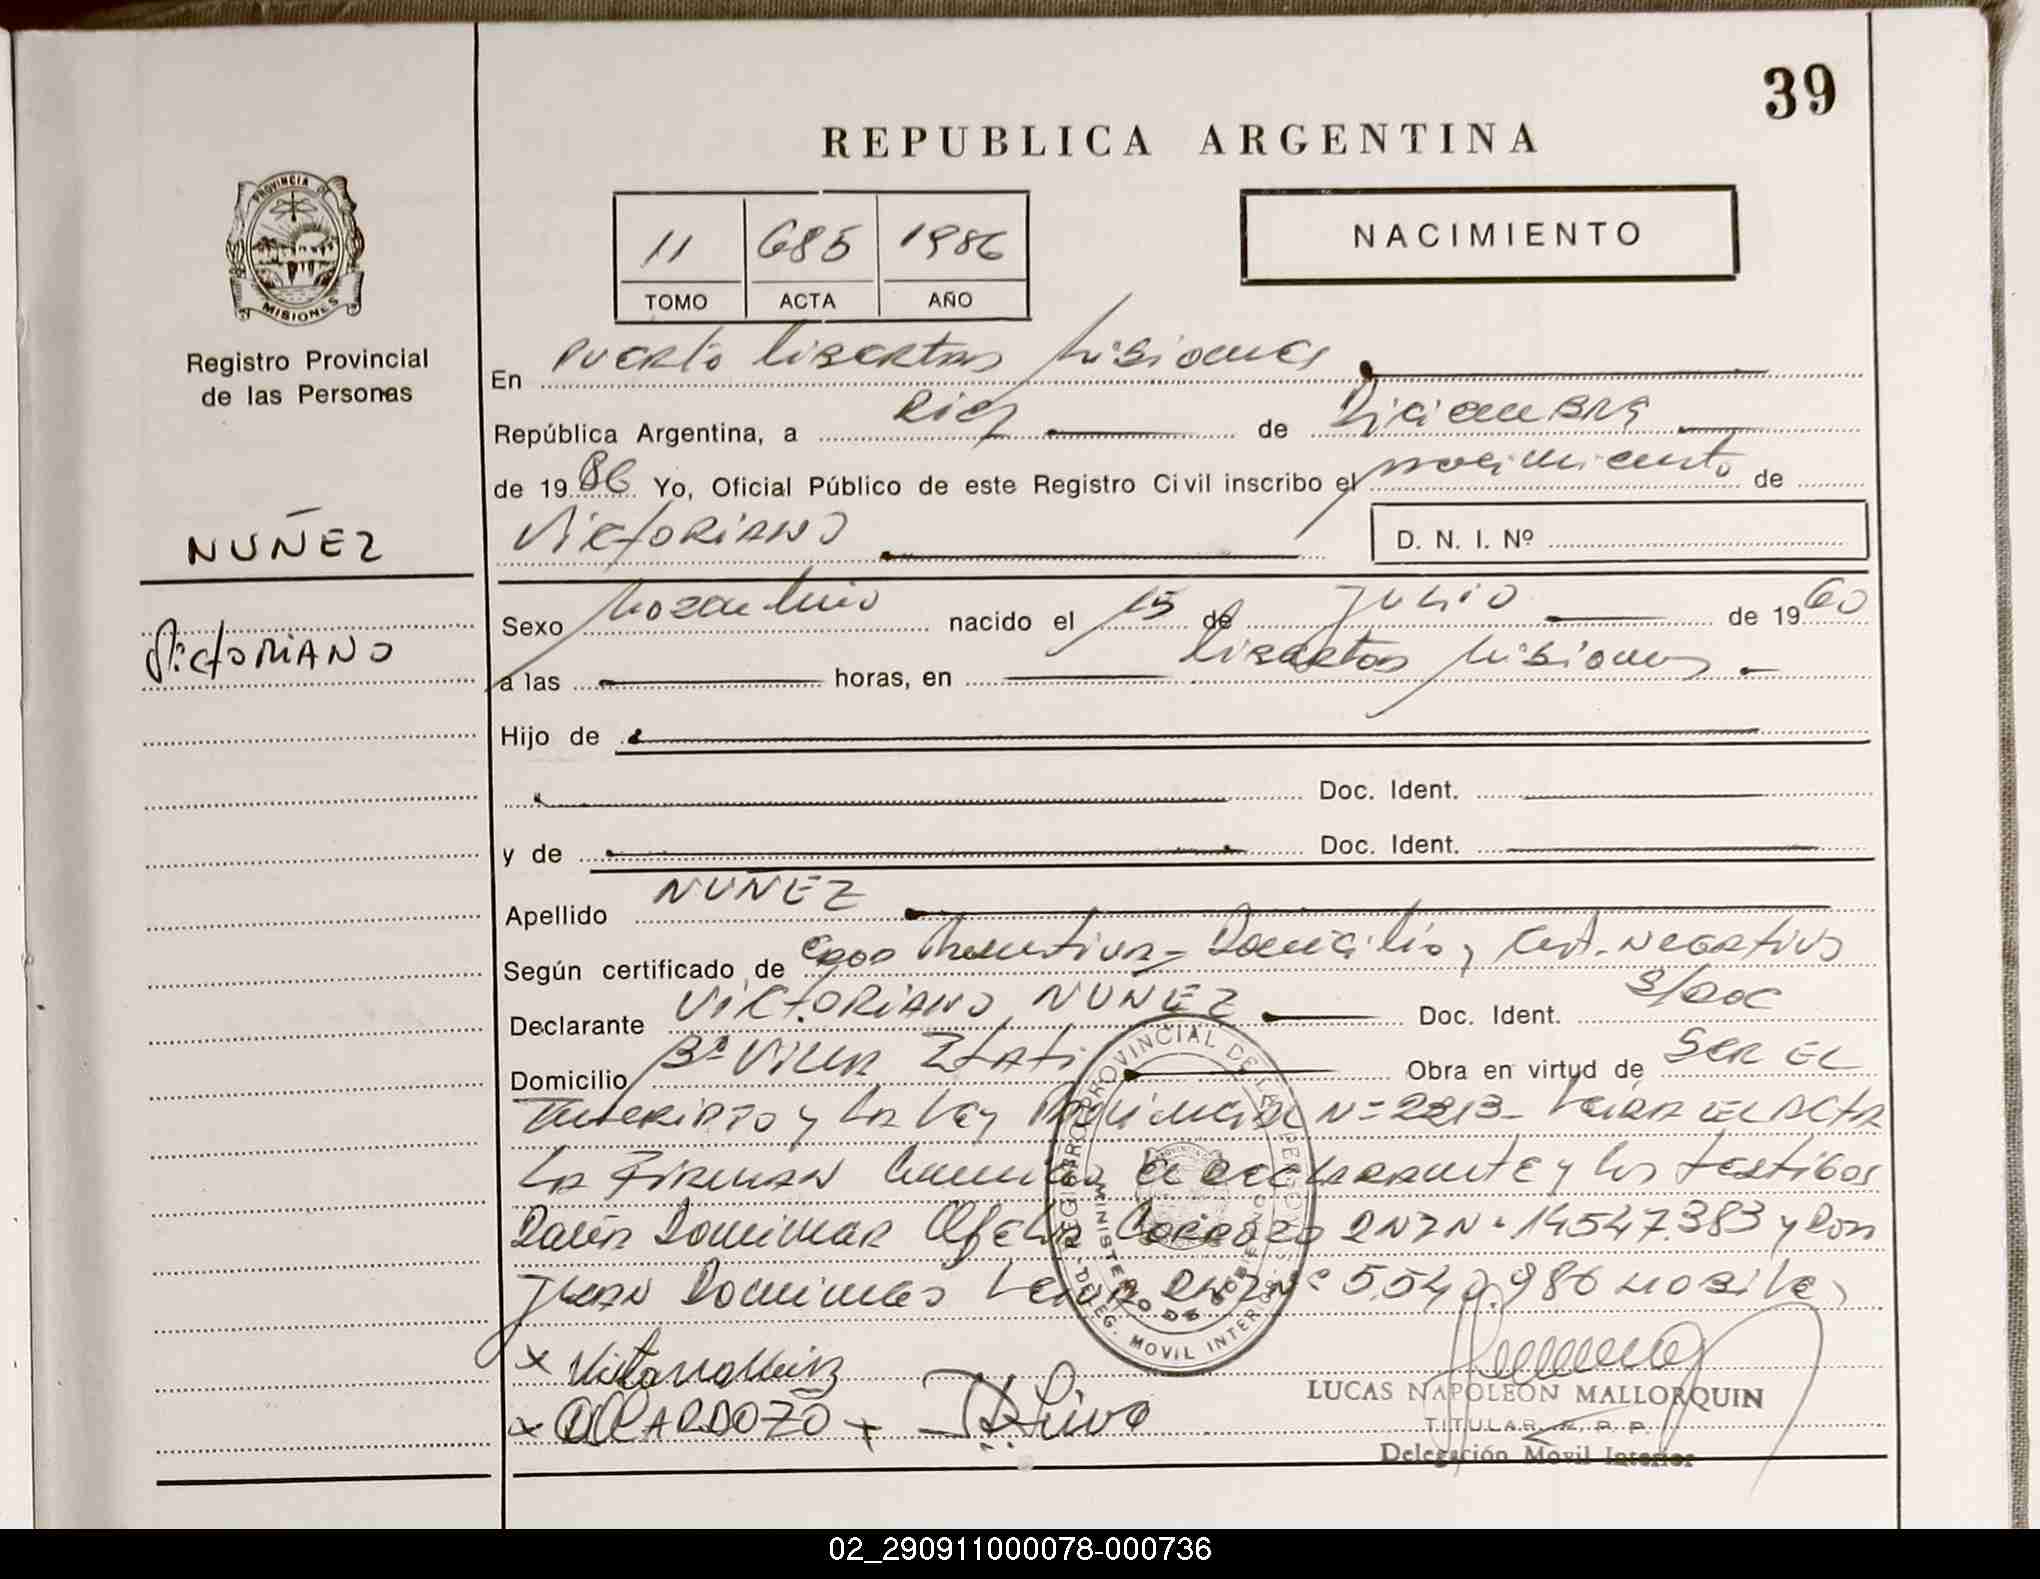 39
REPUBLICA ARGENTINA
PROVINCIA DE
MISIONES
Registro Provincial
de las Personas
11 685 1986
TOMO ACTA AÑO
NACIMIENTO
En Puerto Libertad Misiones
República Argentina, a Diez de Diciembre
de 1986 Yo, Oficial Público de este Registro Civil inscribo el nacimiento de
NUÑEZ
VICTORIANO
D. N. I. Nº
Victoriano
Sexo Masculino nacido el 15 de Julio de 1960
a las horas, en Libertad Misiones
Hijo de
Doc. Ident.
y de Doc. Ident.
Apellido NUÑEZ
Según certificado de Domicilio, Cert. Negativo
Declarante VICTORIANO NUÑEZ Doc. Ident. S/DOC
Domicilio Bº Villa Itati Obra en virtud de SER EL
Inscripto y la Ley Provincial Nº 2213- Leida el Acta
La Firman el Declarante y los testigos
Doña Ofelia Cardozo DNI Nº 14547.383 y Don
Juan DNI Nº 5.540.986
REGISTRO PROVINCIAL DE LAS PERSONAS
MINISTERIO DE GOBIERNO
DELEG. MOVIL INTERIOR
x
x CARDOZO +
LUCAS NAPOLEON MALLORQUIN
TITULAR R. P. P.
Delegación Móvil Interior
02_290911000078-000736